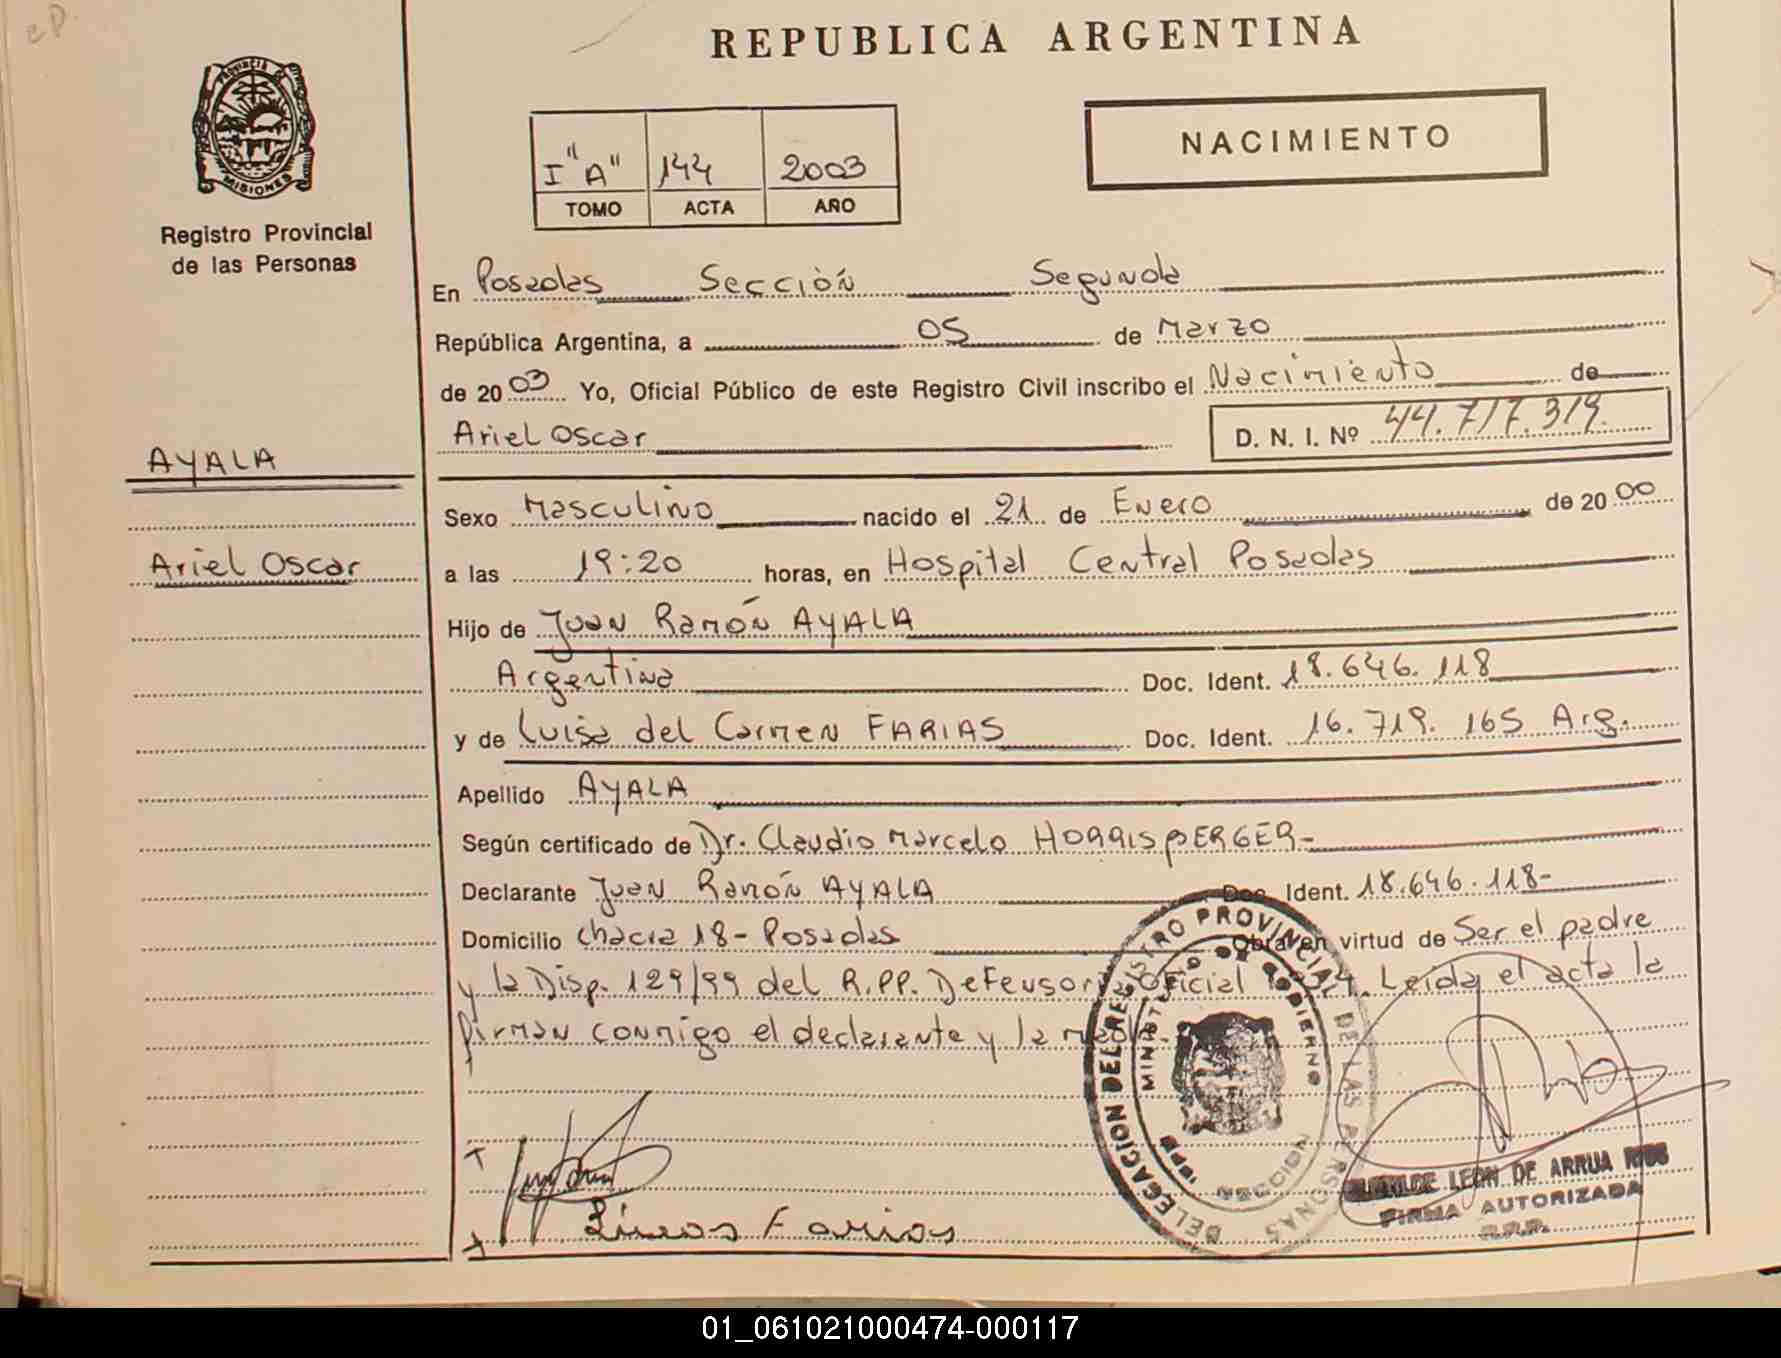 REPUBLICA ARGENTINA
PROVINCIA DE
MISIONES
Registro Provincial
de las Personas
NACIMIENTO
I "A" 144 2003
TOMO ACTA AÑO
En Posadas Sección Segunda
República Argentina, a 05 de Marzo
de 2003 Yo, Oficial Público de este Registro Civil inscribo el Nacimiento de
Ariel Oscar D. N. I. Nº 44.717.319.
AYALA
Ariel Oscar
Sexo Masculino nacido el 21 de Enero de 2000
a las 19:20 horas, en Hospital Central Posadas
Hijo de Juan Ramón AYALA
Argentina Doc. Ident. 18.646.118
y de Luisa del Carmen FARIAS Doc. Ident. 16.719.165 Arg.
Apellido AYALA
Según certificado de Dr. Claudio Marcelo HORRISBERGER-
Declarante Juan Ramón AYALA Doc. Ident. 18.646.118-
Domicilio Chacra 18- Posadas Obra en virtud de Ser el padre
y la Disp. 129/99 del R.PP. Defensoria Oficial Leida el acta la
firman conmigo el declarante y la madre.
DELEGACION DEL REGISTRO PROVINCIAL DE LAS PERSONAS
MINISTERIO DE GOBIERNO
SECCION
Farias
LEON DE ARRUA
FIRMA AUTORIZADA
R.P.P.
01_061021000474-000117